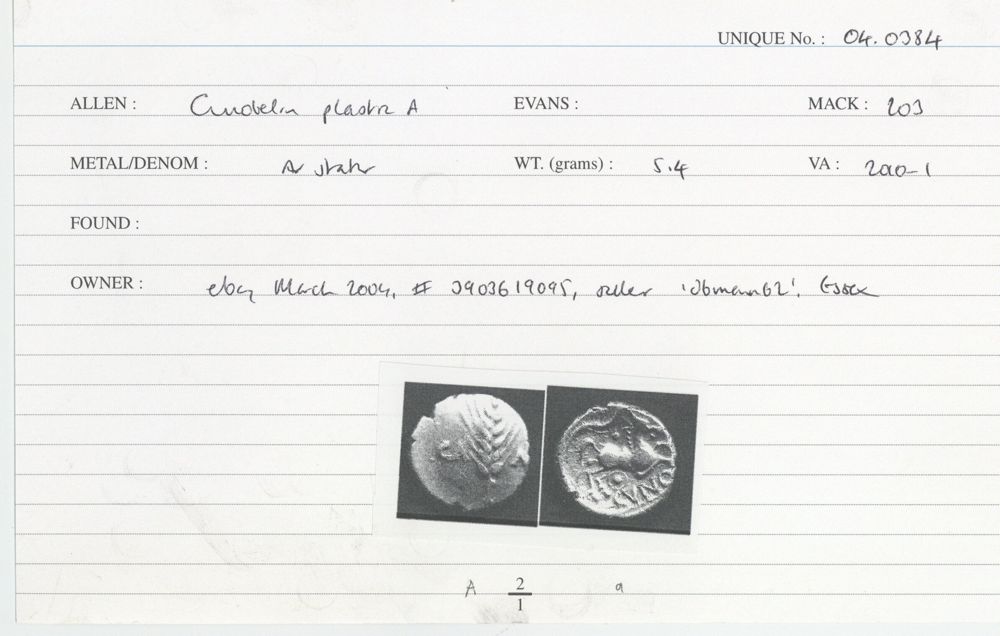 UNIQUE No. : 04.0384
ALLEN : Cunobelin plastic A EVANS : MACK : 203
METAL/DENOM : Av stater WT. (grams) : 5.4 VA : 2010-1
FOUND :
OWNER : ebay March 2004, # 3903619095, seller 'jobmann62', Essex
A 2/1 a